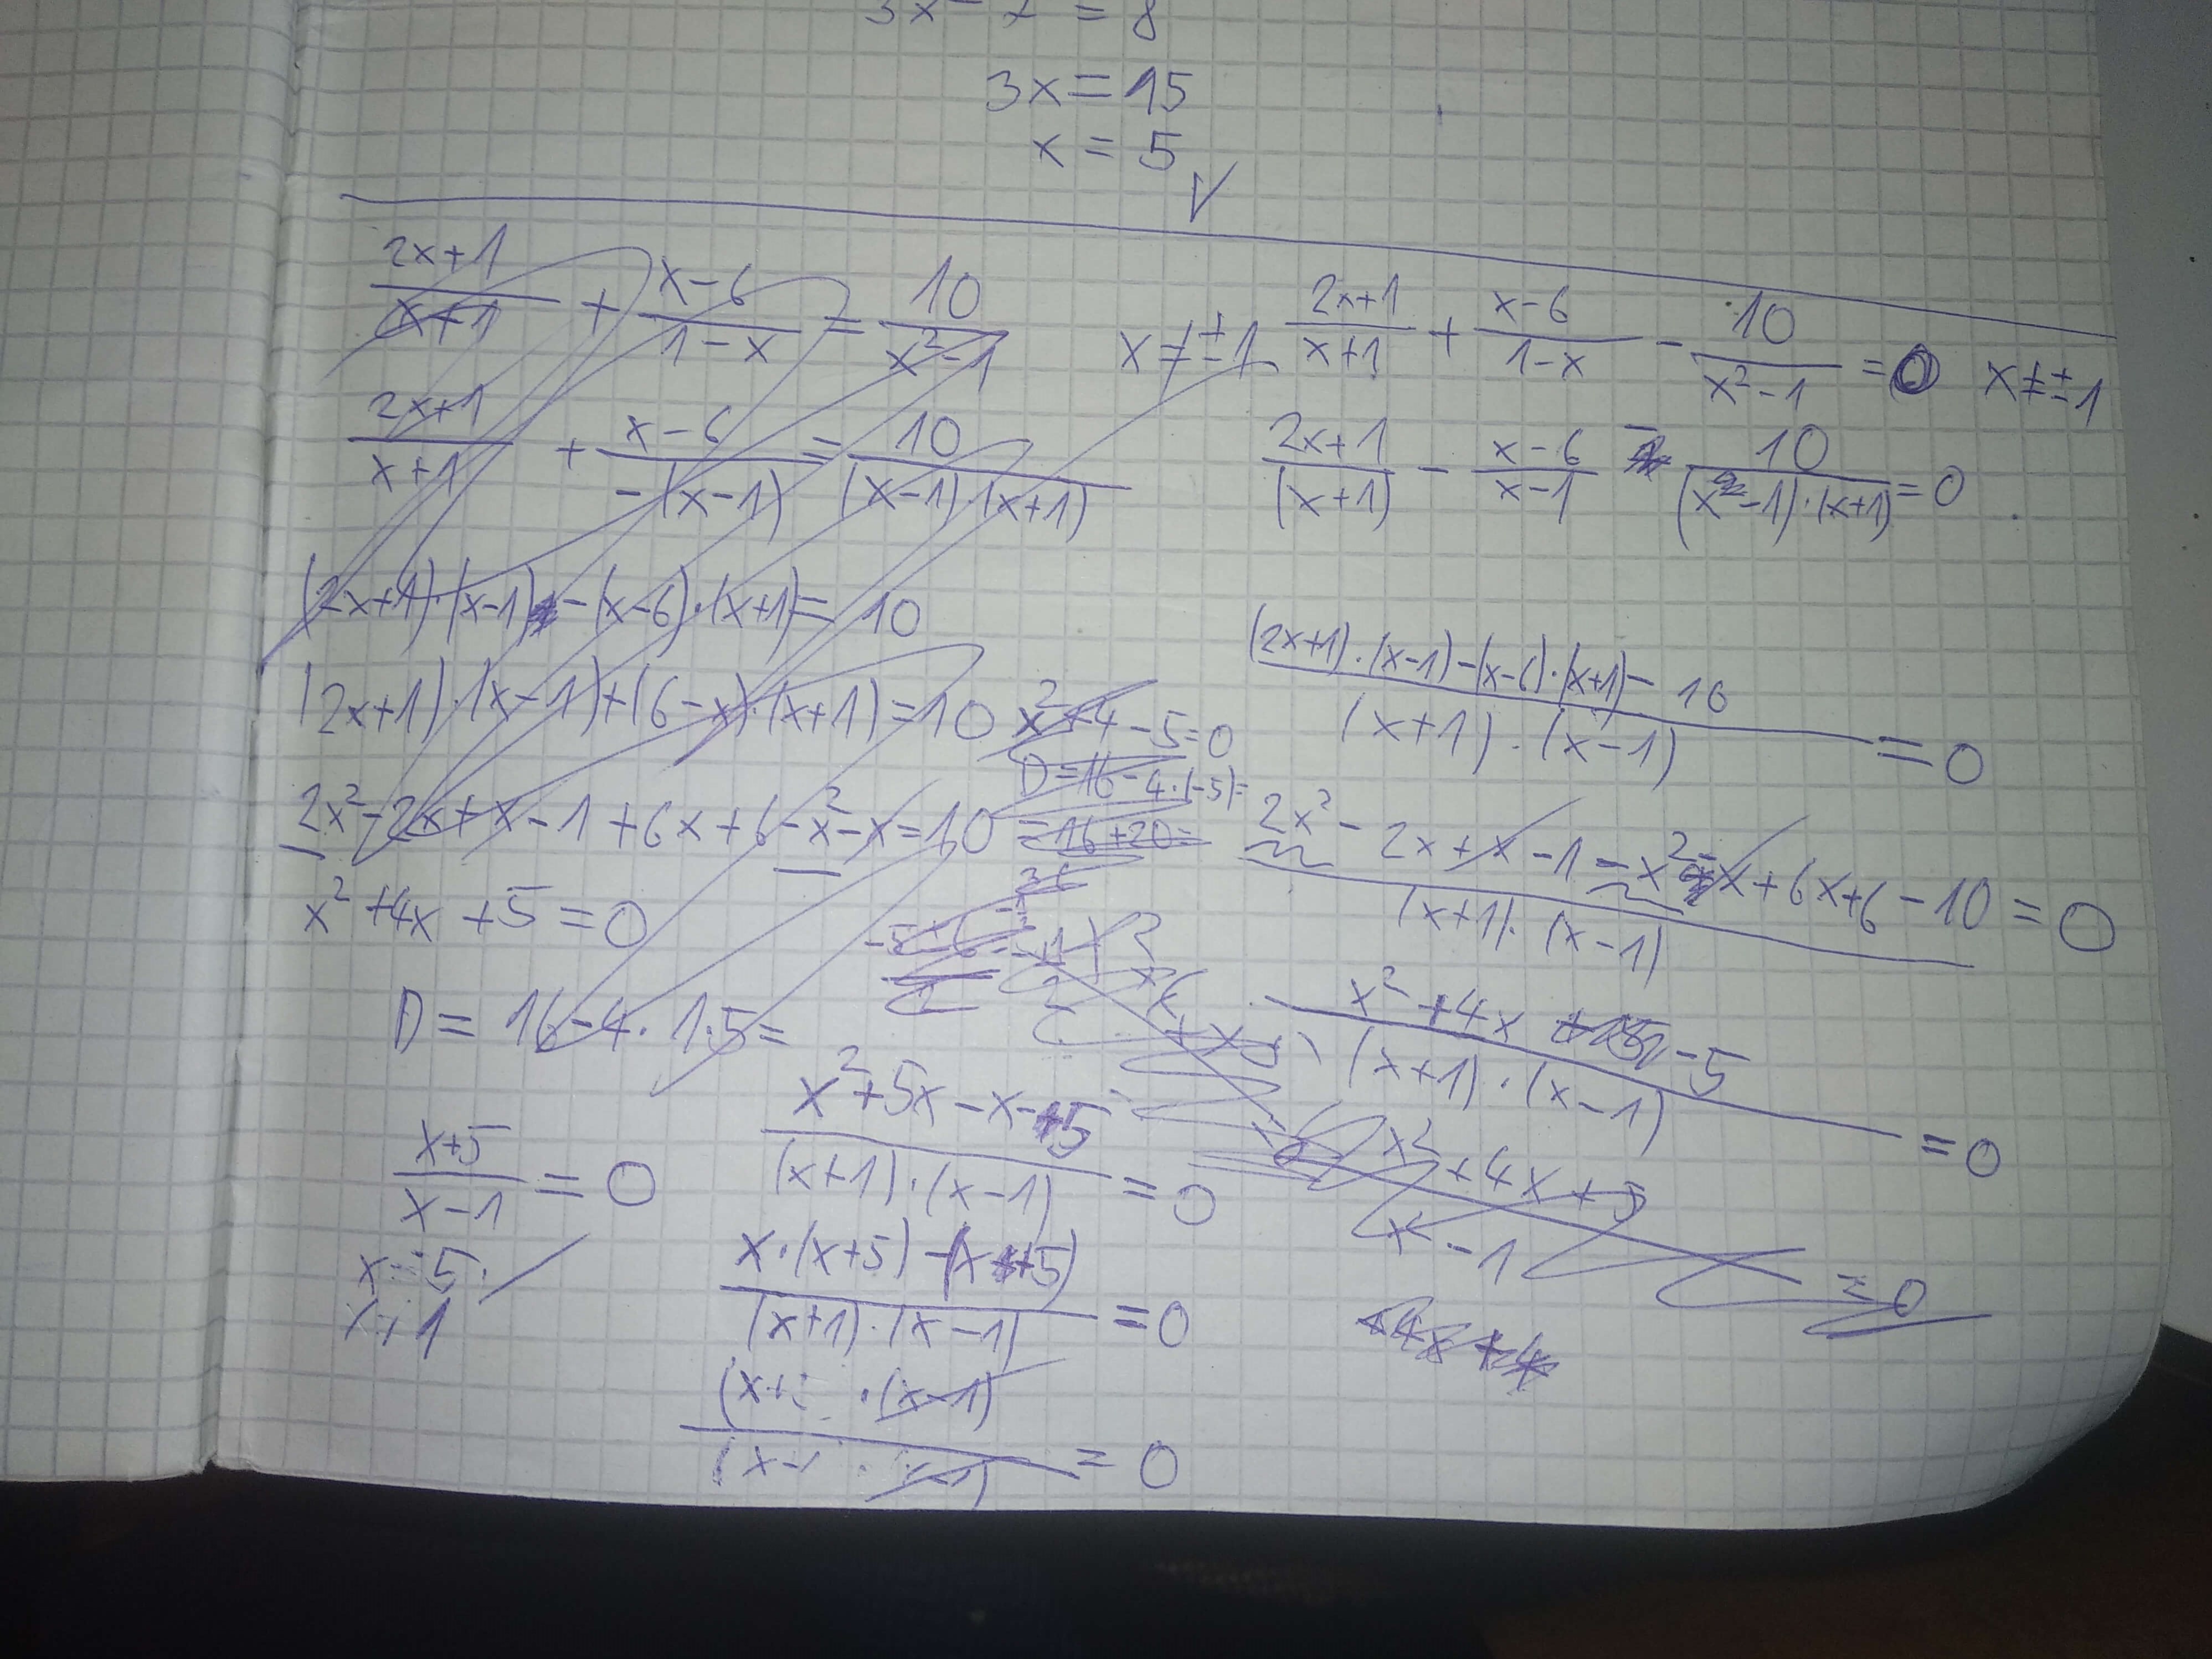 3x - 7 = 8
3x = 15
x = 5 √
(2x+1)/(x+1) + (x-6)/(1-x) = 10/(x²-1) x ≠ ±1
(2x+1)/(x+1) + (x-6)/(-(x-1)) = 10/((x-1)·(x+1))
(2x+1)·(x-1) - (x-6)·(x+1) = 10
(2x+1)·(x-1)+(6-x)·(x+1)=10
2x² - 2x + x - 1 + 6x + 6 - x² - x = 10
x² + 4x + 5 = 0
D = 16 - 4·1·5 =
x² + 4 - 5 = 0
D = 16 - 4·(-5) =
= 16 + 20 =
36
(2x+1)/(x+1) + (x-6)/(1-x) - 10/(x²-1) = 0 x ≠ ±1
(2x+1)/(x+1) - (x-6)/(x-1) - 10/((x-1)·(x+1)) = 0
((2x+1)·(x-1)-(x-6)·(x+1)- 10)/((x+1)·(x-1)) = 0
(2x² - 2x + x - 1 - x² - x + 6x + 6 - 10)/((x+1)·(x-1)) = 0
(x² + 4x - 5)/((x+1)·(x-1)) = 0
(x² + 4x + 5)/(x - 1) = 0
(x² + 5x - x - 5)/((x+1)·(x-1)) = 0
(x·(x+5) - (x+5))/((x+1)·(x-1)) = 0
·(x-1)
= 0
(x+5)/(x-1) = 0
x = -5
x ≠ 1